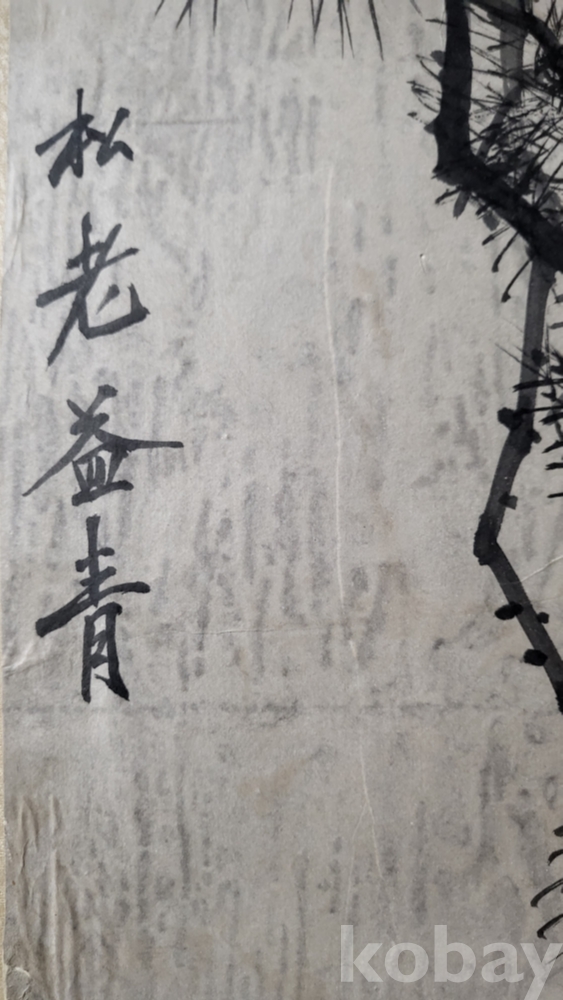 松老益青
kobay